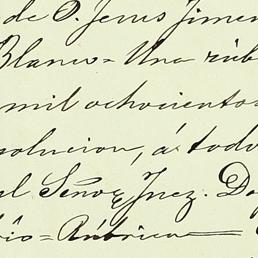 de D. Jesus Jimen
Blanco = Una rúb
mil ochocientos
solucion, á todo
al Señor Juez. Do
= Rúbrica —